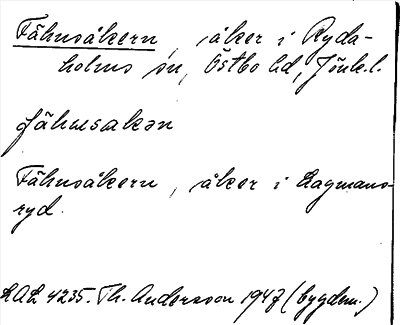 Fähusåkern, åker i Ryda-
holms sn, Östbo hd, Jönk.l.
fähusakən
Fähusåkern, åker i Lagmans-
ryd.
LAL 4235. Th. Andersson 1947 (bygdeu.)